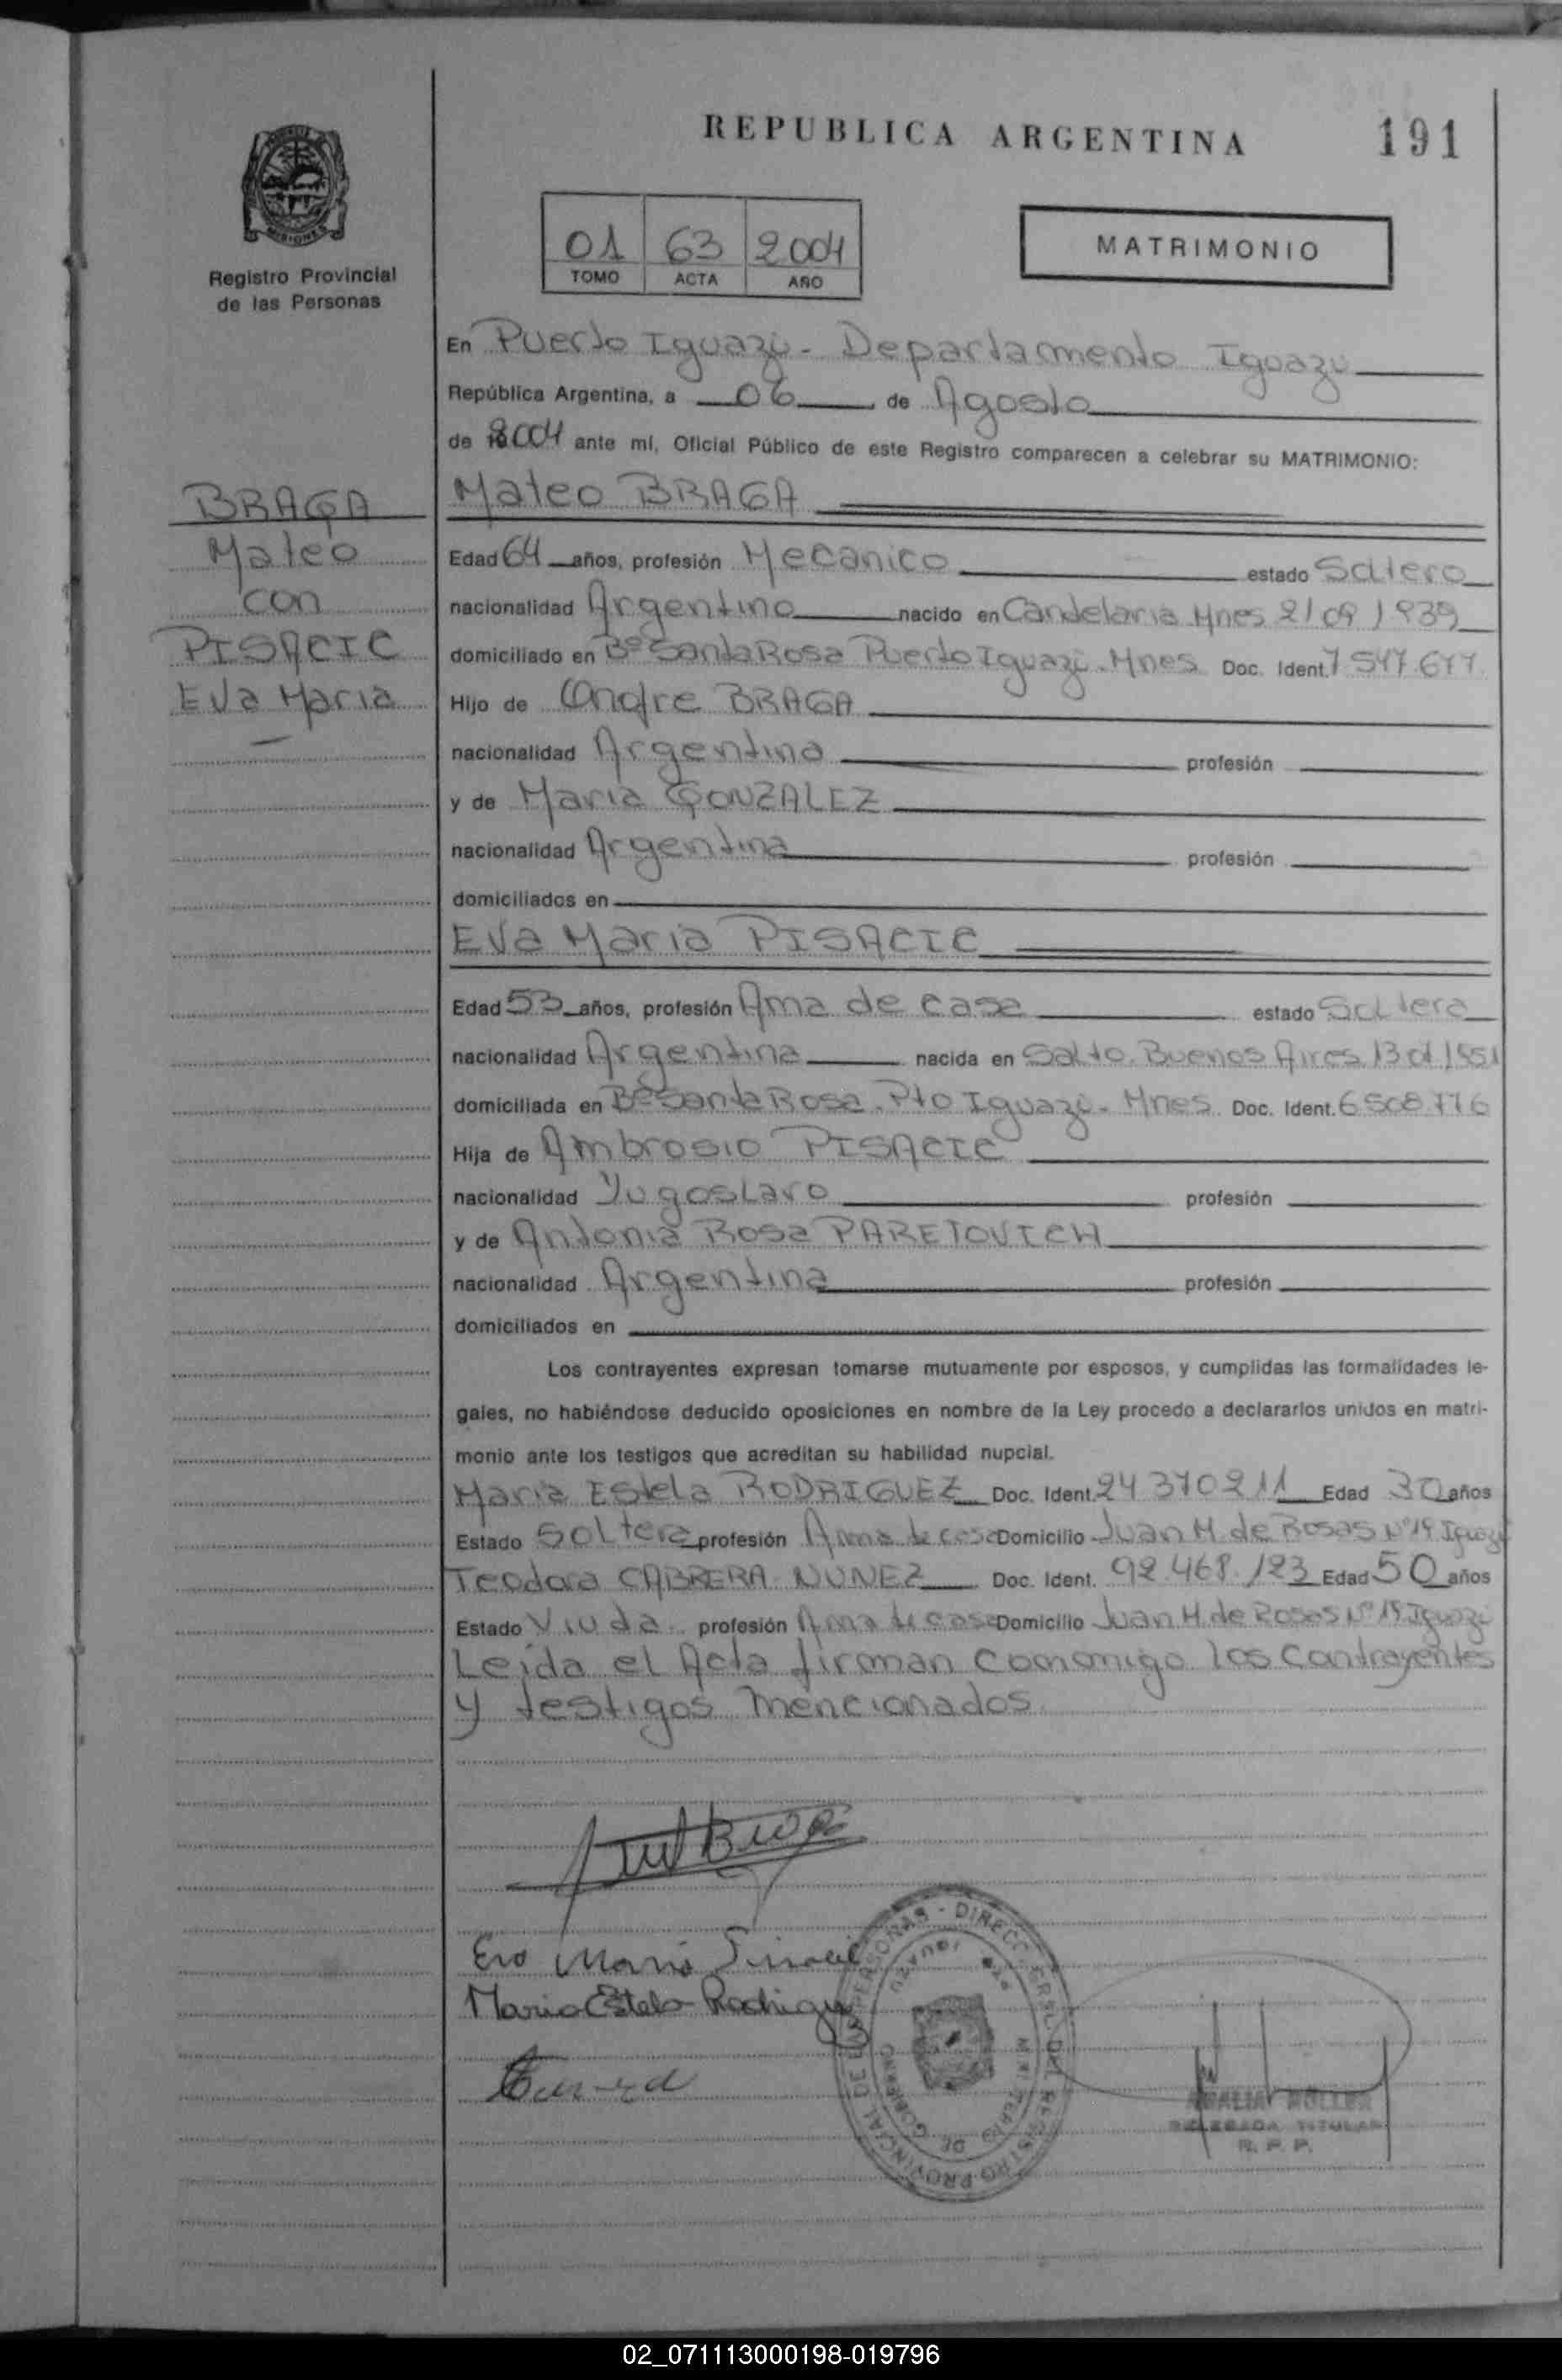 REPUBLICA ARGENTINA
191
MISIONES
Registro Provincial
de las Personas
01 63 2004
TOMO ACTA AÑO
MATRIMONIO
En Puerto Iguazú - Departamento Iguazú
República Argentina, a 06 de Agosto
de 2004 ante mí, Oficial Público de este Registro comparecen a celebrar su MATRIMONIO:
BRAGA
Mateo
con
PISACIC
Eva Maria
Mateo BRAGA
Edad 64 años, profesión Mecanico estado Soltero
nacionalidad Argentino nacido en Candelaria Mnes 21/09/1939
domiciliado en Bº Santa Rosa Puerto Iguazú - Mnes Doc. Ident. 7.547.677
Hijo de Onofre BRAGA
nacionalidad Argentino profesión
y de Maria GONZALEZ
nacionalidad Argentina profesión
domiciliados en
Eva Maria PISACIC
Edad 53 años, profesión Ama de casa estado Soltera
nacionalidad Argentina nacida en Salto - Buenos Aires 13 01 1951
domiciliada en Bº Santa Rosa - Pto Iguazú - Mnes Doc. Ident. 6508776
Hija de Ambrosio PISACIC
nacionalidad Yugoslavo profesión
y de Antonia Rosa PARETOVICH
nacionalidad Argentina profesión
domiciliados en
Los contrayentes expresan tomarse mutuamente por esposos, y cumplidas las formalidades le-
gales, no habiéndose deducido oposiciones en nombre de la Ley procedo a declararlos unidos en matri-
monio ante los testigos que acreditan su habilidad nupcial.
Maria Estela RODRIGUEZ Doc. Ident. 24 370 211 Edad 30 años
Estado Soltera profesión Ama de casa Domicilio Juan M. de Rosas Nº 19 Iguazú
Teodora CABRERA NUNEZ Doc. Ident. 92.468.123 Edad 50 años
Estado Viuda profesión Ama de casa Domicilio Juan M. de Rosas Nº 19 Iguazú
Leida el Acta firman conmigo los Contrayentes
y testigos mencionados.
Eva Maria Pisacic
Maria Estela Rodrigu
AMALIA MÜLLER
DELEGADA TITULAR
R. P. P.
02_071113000198-019796